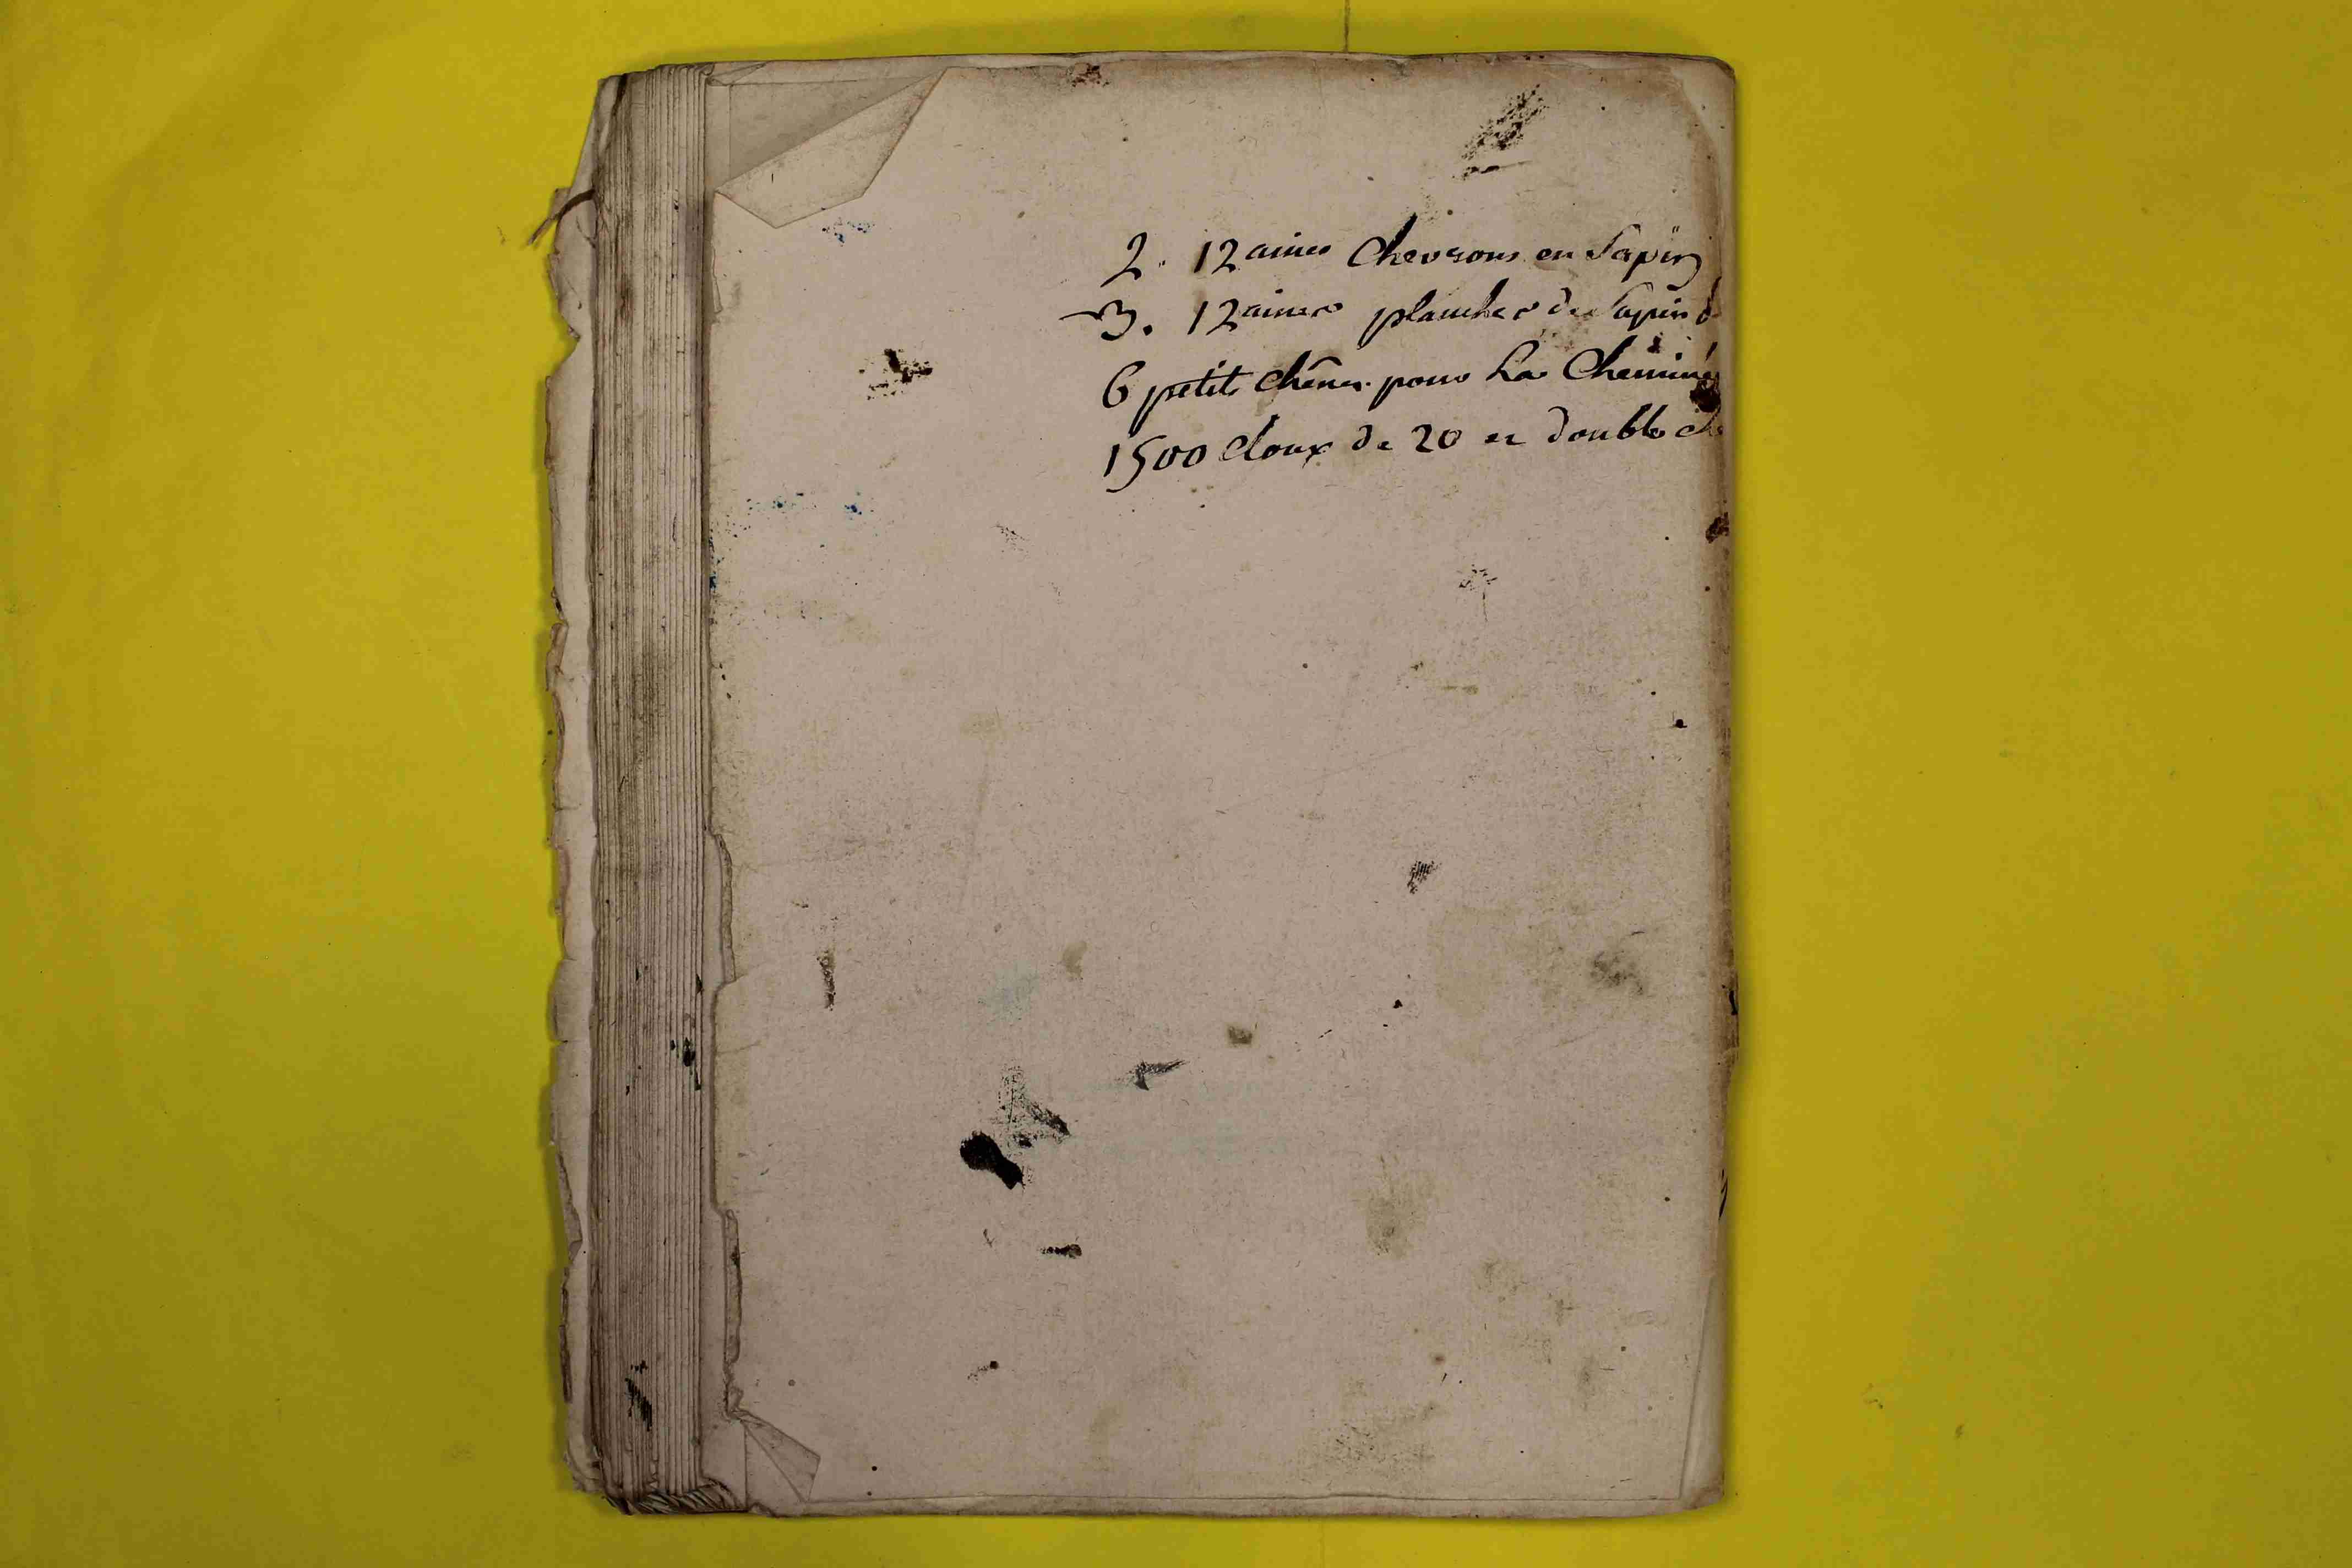 2. 12aines Chevrons en Sapin
3. 12aines planches de Sapin d
6 petits chênes pour La Cheminé
1500 Cloux de 20 et double